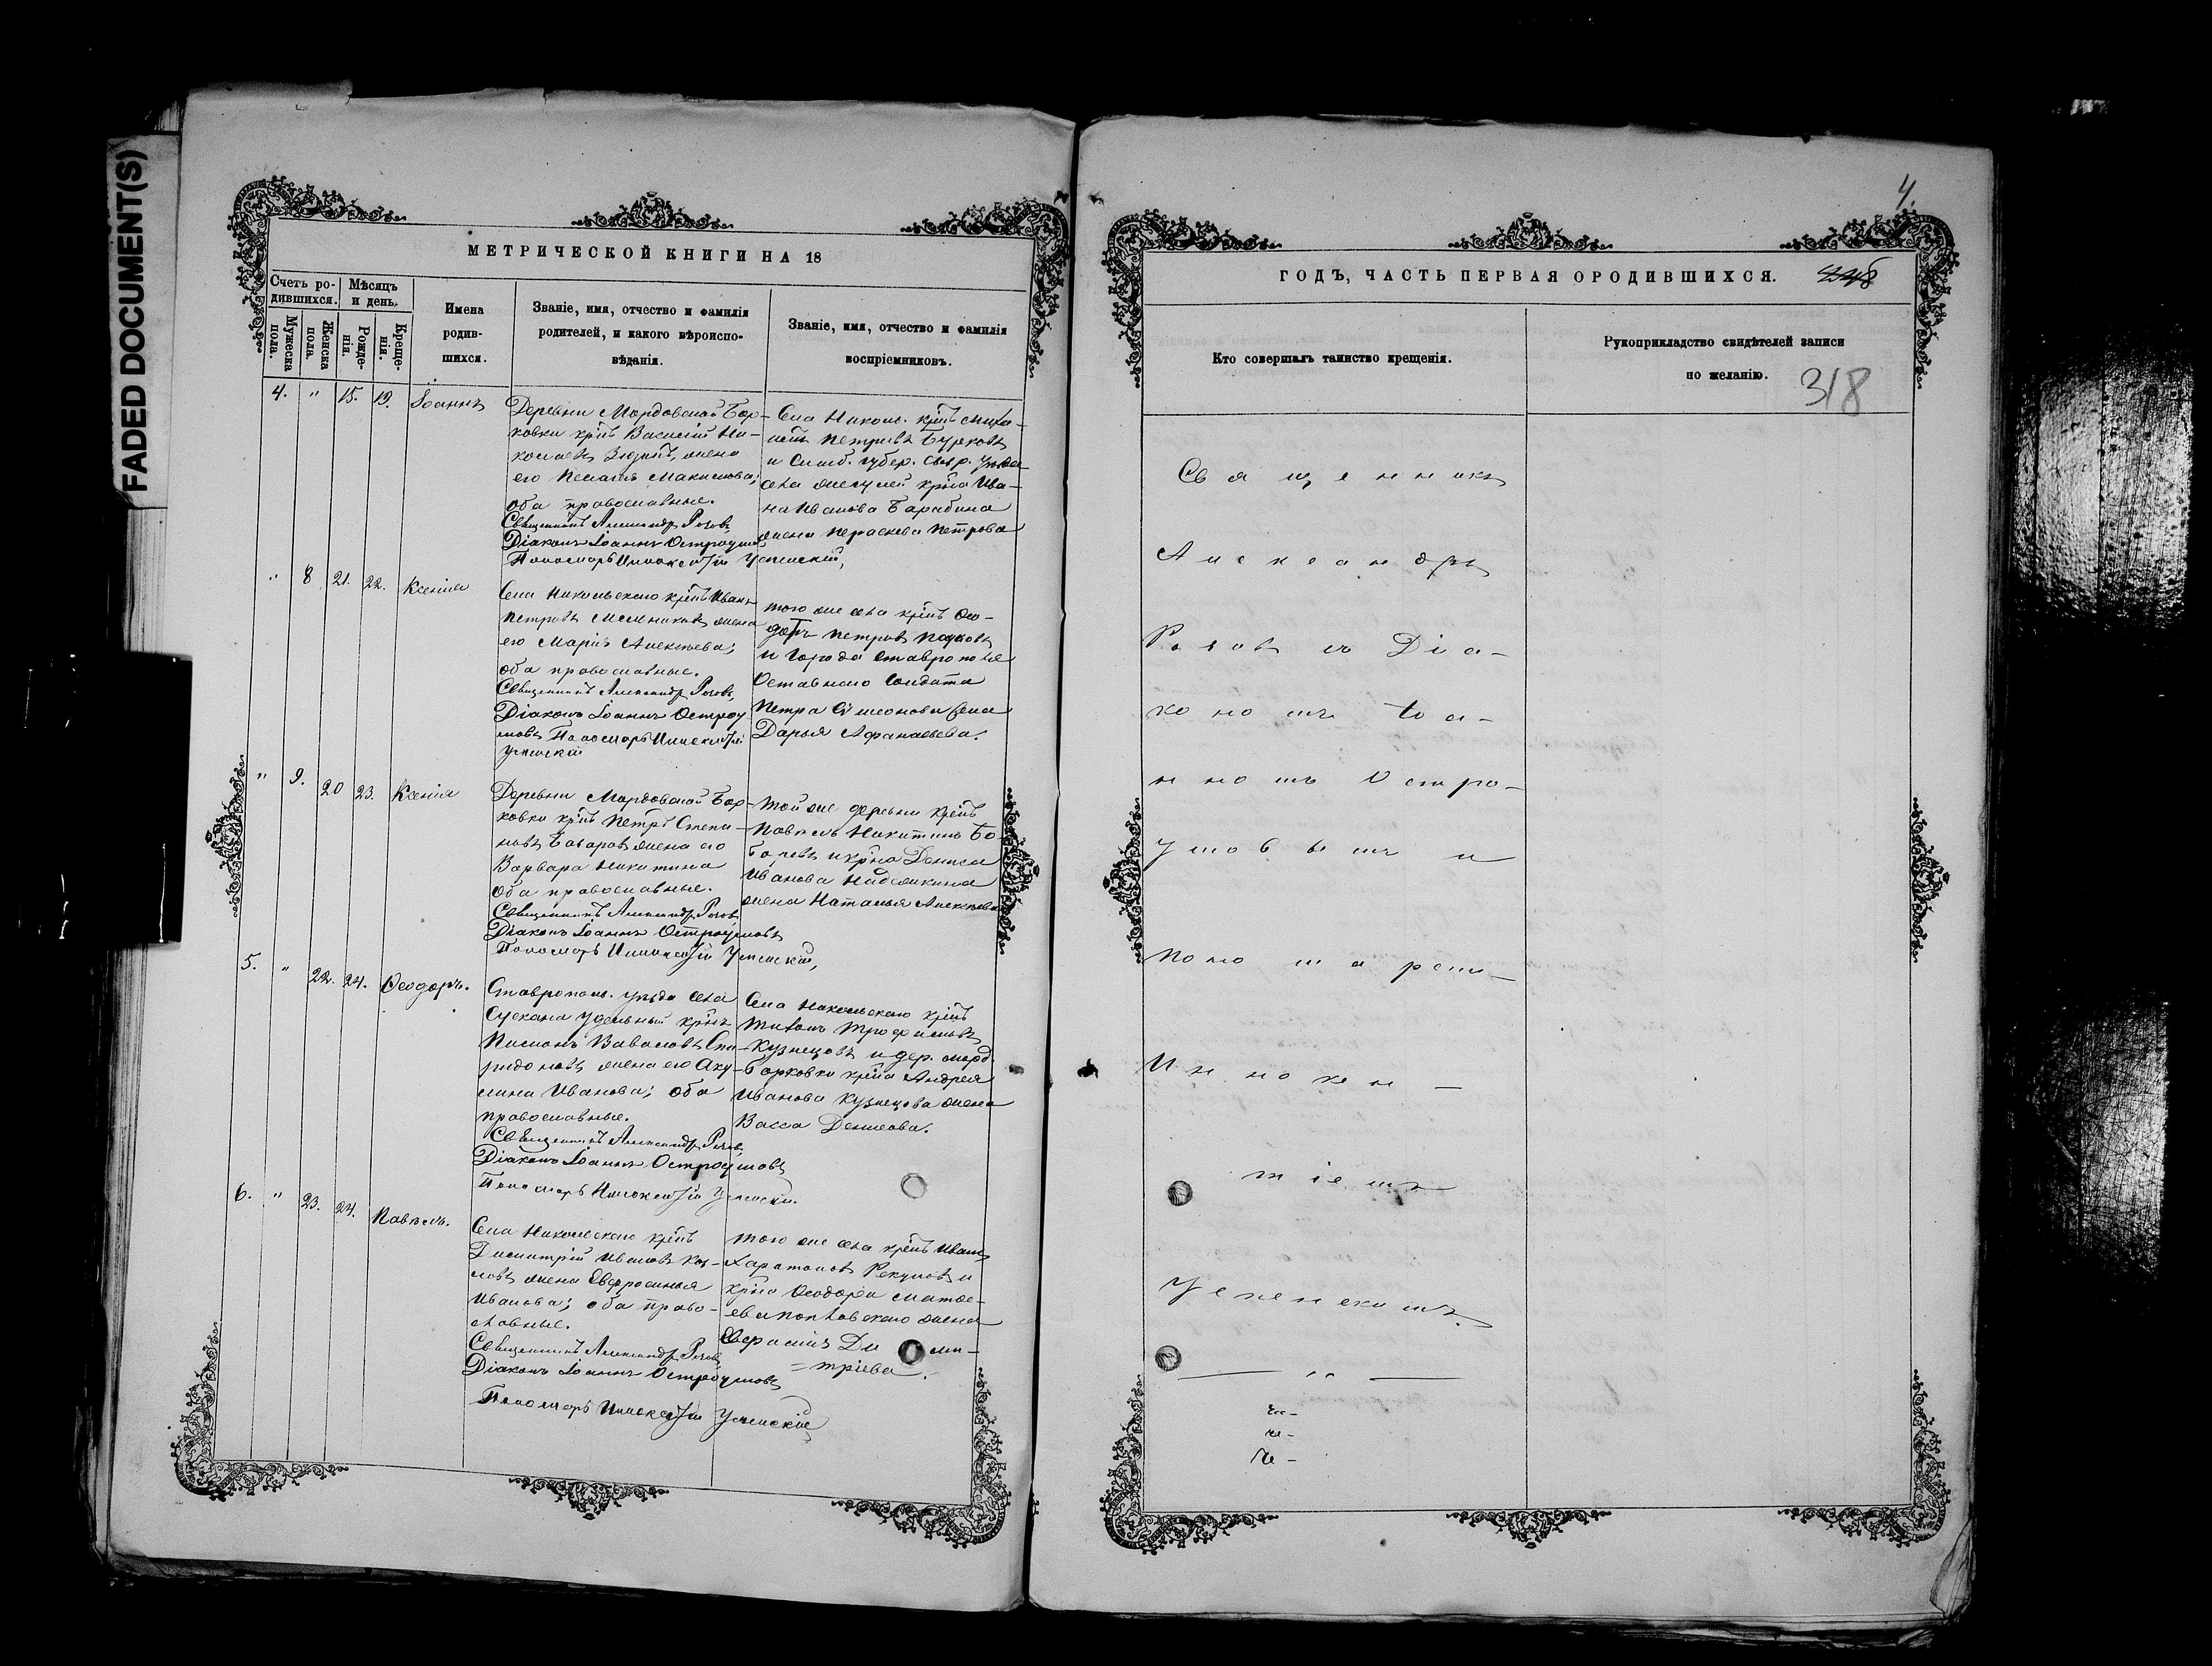 FADED DOCUMENT(S)
МЕТРИЧЕСКОЙ КНИГИ НА 18
Счетъ ро-
дившихся.
Мѣсяцъ
и день.
Мужеска
пола.
Женска
пола.
Рожде-
нія.
Креще-
нія.
Имена
родив-
шихся.
Званіе, имя, отчество и фамилія
родителей, и какого вѣроиспо-
вѣданія.
Званіе, имя, отчество и фамилія
воспріемниковъ.
4. " 15. 19. Іоаннъ
Деревни Мордовской Бор-
ковки крѣнъ Василій Ни-
колаевъ жена
его Пелагія Максимова;
оба православные.
Священникъ Александръ Розовъ
Діаконъ Іоаннъ Остроумовъ
Пономарь Иннокентій Успенскій,
Села Никольс. крѣнъ Миха-
илъ Петровъ Бурковъ
и Симб. губер. Сызр. уѣзда
села крѣна Ива-
на Иванова Барабина
жена Параскева Петрова
" 8 21. 22. Ксенія
Села Никольскаго крѣнъ Иванъ
Петровъ Мельниковъ жена
его Марія Алексѣева;
оба православные.
Священникъ Александръ Розовъ,
Діаконъ Іоаннъ Остроу
мовъ Пономарь Иннокентій
Успенскій
того же села крѣнъ Ѳео-
дотъ Петровъ
и города Ставрополя
Отставнаго Солдата
Петра Сѵмеонова жена
Дарья Афанасьева.
" 9. 20 23. Ксенія
Деревни Мордовской Бор-
ковки крѣнъ Петръ Степа-
новъ жена его
Варвара Никитина
оба православные.
Священникъ Александръ Розовъ
Діаконъ Іоаннъ Остроумовъ
Пономарь Иннокентій Успенскій,
той же деревни крѣнъ
Павелъ Никитинъ Бо-
и крѣна Дениса
Иванова
жена Наталья Алексѣева
5. " 22. 24. Ѳеодоръ.
Ставропол. уѣзда села
Сускана удѣльный крѣнъ
Вавиловъ Спи-
ридоновъ жена его Аку-
лина Иванова; оба
православные.
Священникъ Александръ Розовъ,
Діаконъ Іоаннъ Остроумовъ
Пономарь Иннокентій Успенскій.
Села Никольскаго крѣнъ
Тихонъ Трофимовъ
Кузнецовъ и дер. морд.
Борковки крѣна Андрея
Иванова Кузнецова жена
Васса Денисова.
6. " 23. 24. Павелъ.
Села Никольскаго крѣнъ
Димитрій Ивановъ Коз-
ловъ жена Евфросинья
Иванова; оба право-
славные.
Священникъ Александръ Розовъ
Діаконъ Іоаннъ Остроумовъ
Пономарь Иннокентій Успенскій
того же села крѣнъ Иванъ
Харитоновъ Рекуновъ и
крѣна Ѳеодора Матѳе-
ева жена
Ди ми-
= тріева.
4.
ГОДЪ, ЧАСТЬ ПЕРВАЯ О РОДИВШИХСЯ.
Кто совершалъ таинство крещенія.
Рукоприкладство свидѣтелей записи
по желанію.
318
Священникъ
Александръ
Розовъ съ Діа-
кономъ Іоа-
нномъ Остро-
умовымъ и
Поно ма ремъ
Иннокен-
тіемъ
Успенскимъ.